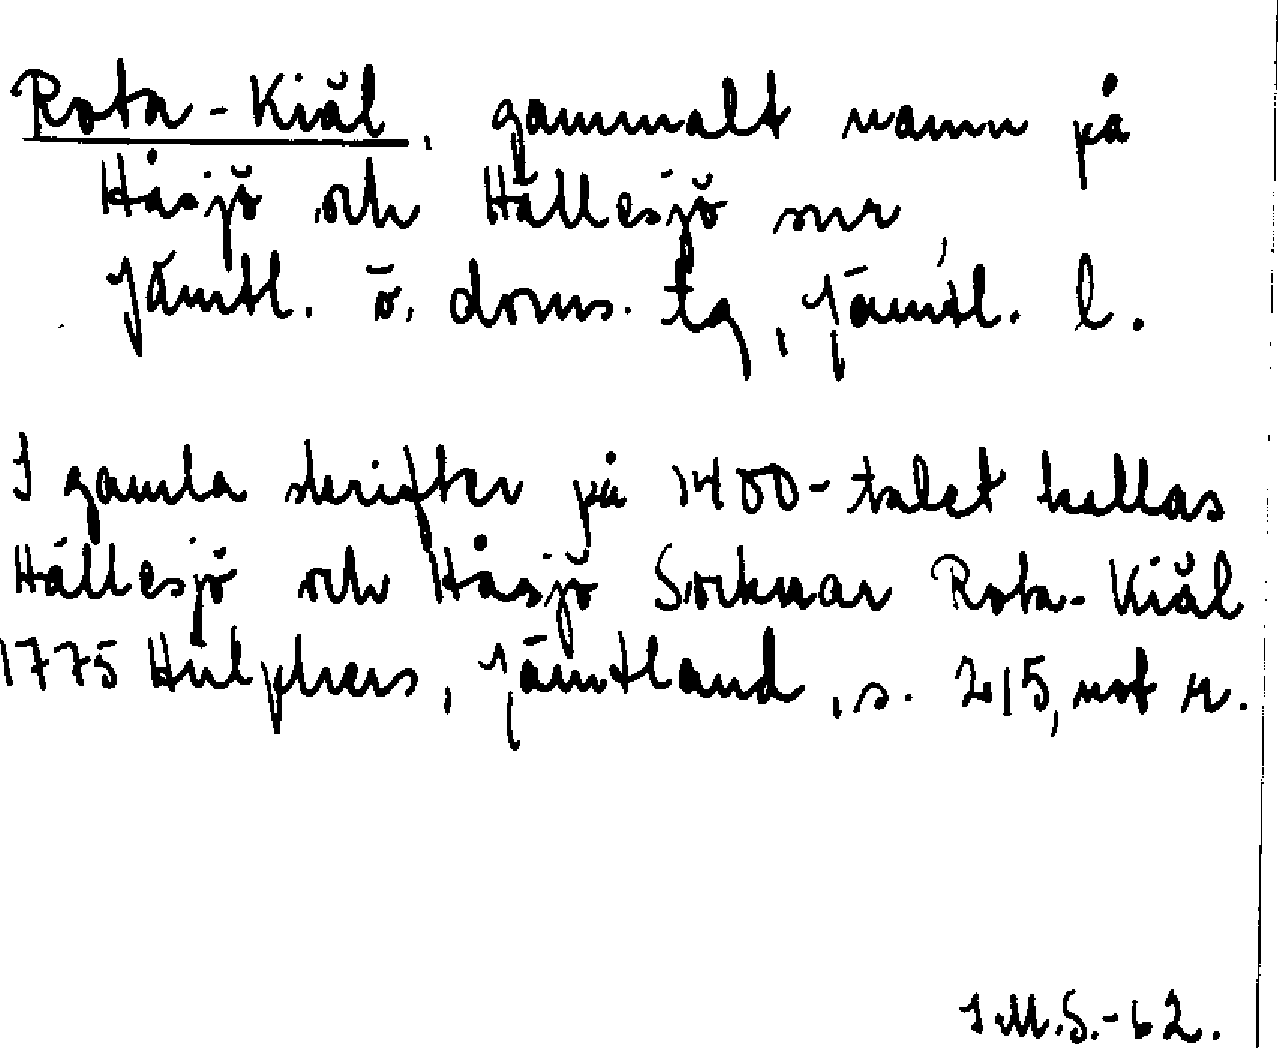 Rota-Kiäl, gammalt namn på
Håsjö och Hällesjö snr,
Jämtl. ö. doms. tg, Jämtl. l.
I gamla skrifter på 1400-talet kallas
Hällesjö och Håsjö Socknar Rota-Kiäl
1775 Hülphers, Jämtland, s. 215, not r.
I M.S.-62.